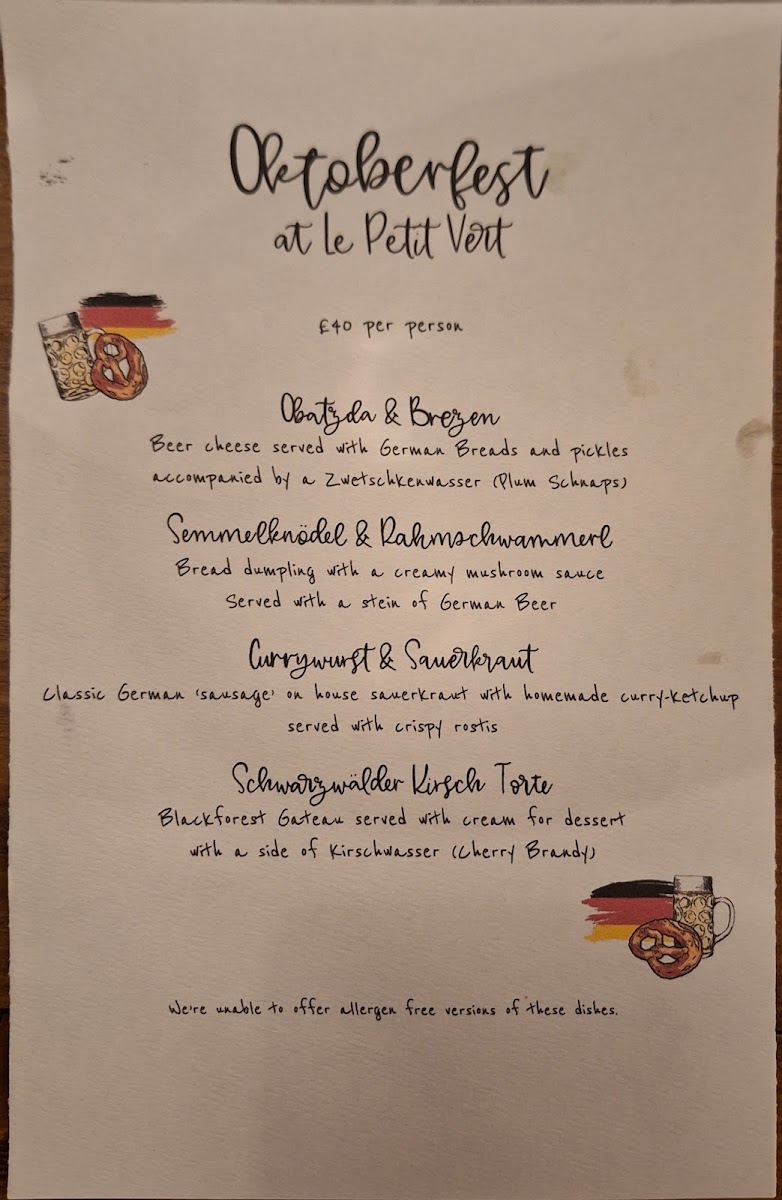 Oktoberfest
at Le Petit Vert
£40 per person
Obatzda & Brezen
Beer cheese served with German Breads and pickles
accompanied by a Zwetschkenwasser (Plum Schnaps)
Semmelknödel & Rahmschwammerl
Bread dumpling with a creamy mushroom sauce
Served with a stein of German Beer
Currywurst & Sauerkraut
Classic German 'sausage' on house sauerkraut with homemade curry-ketchup
served with crispy rostis
Schwarzwälder Kirsch Torte
Blackforest Gateau served with cream for dessert
with a side of Kirschwasser (Cherry Brandy)
We're unable to offer allergen free versions of these dishes.